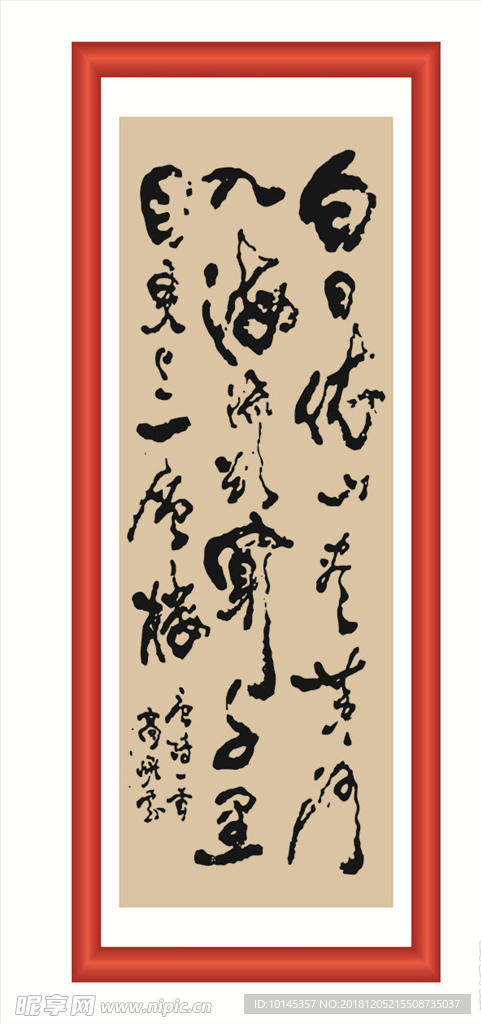 白日依山尽黄河
入海流欲穷千里
目更上一层楼
唐诗一首
昵享网 www.nipic.cn
ID:10145357 NO:20181205215508735037